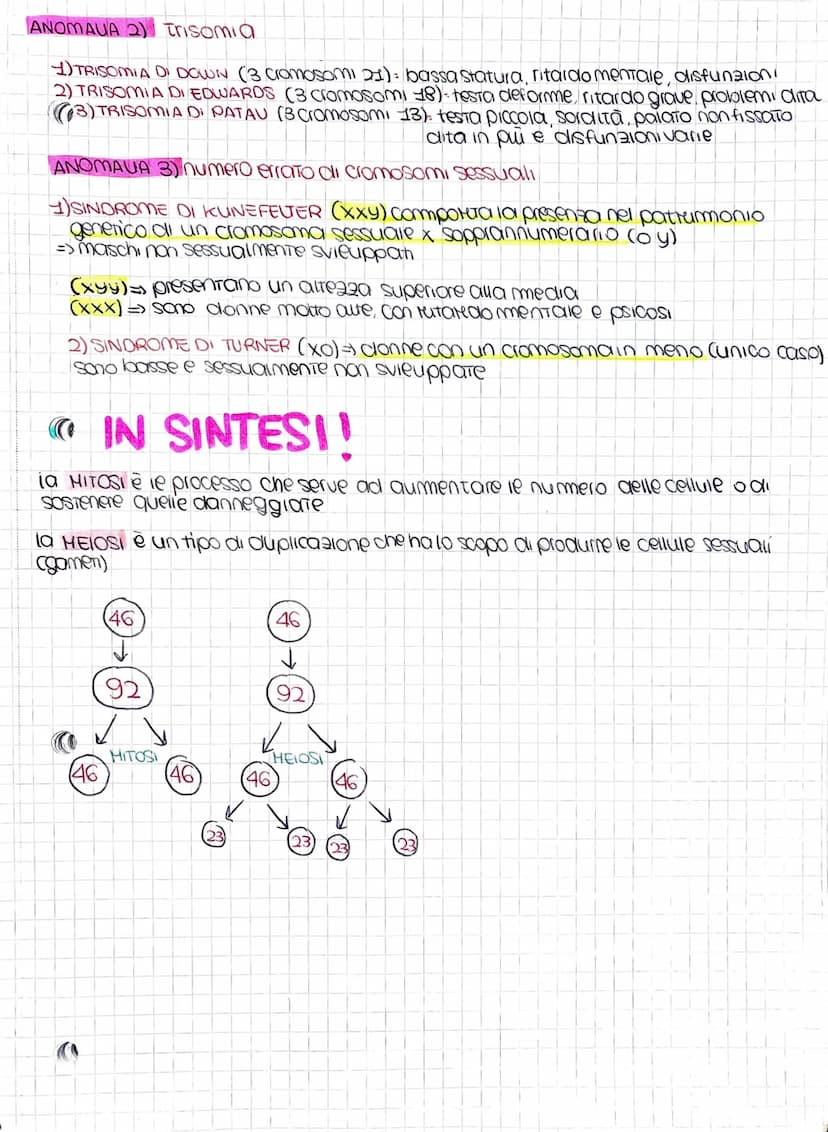 ANOMALIA 2) Trisomia
1) TRISOMIA DI DOWN (3 cromosomi 21): bassa statura, ritardo mentale, disfunzioni
2) TRISOMIA DI EDWARDS (3 cromosomi 18): testa deforme, ritardo grave, problemi dita
3) TRISOMIA DI PATAU (3 cromosomi 13): testa piccola, sordità, palato non fissato
dita in più e disfunzioni varie
ANOMALIA 3) numero errato di cromosomi sessuali
1) SINDROME DI KLINEFELTER (xxy) comporta la presenza nel patrimonio
genetico di un cromosoma sessuale x soprannumerario (o y)
=> maschi non sessualmente sviluppati
(xyy) => presentano un altezza superiore alla media
(xxx) => sono donne molto alte, con ritardo mentale e psicosi
2) SINDROME DI TURNER (x0) => donne con un cromosoma in meno (unico caso)
sono basse e sessualmente non sviluppate
IN SINTESI!
la MITOSI è il processo che serve ad aumentare il numero delle cellule o di
sostenere quelle danneggiate
la MEIOSI è un tipo di duplicazione che ha lo scopo di produrre le cellule sessuali
(gameti)
46 46
92 92
MITOSI MEIOSI
46 46 46 46
23 23 23 23